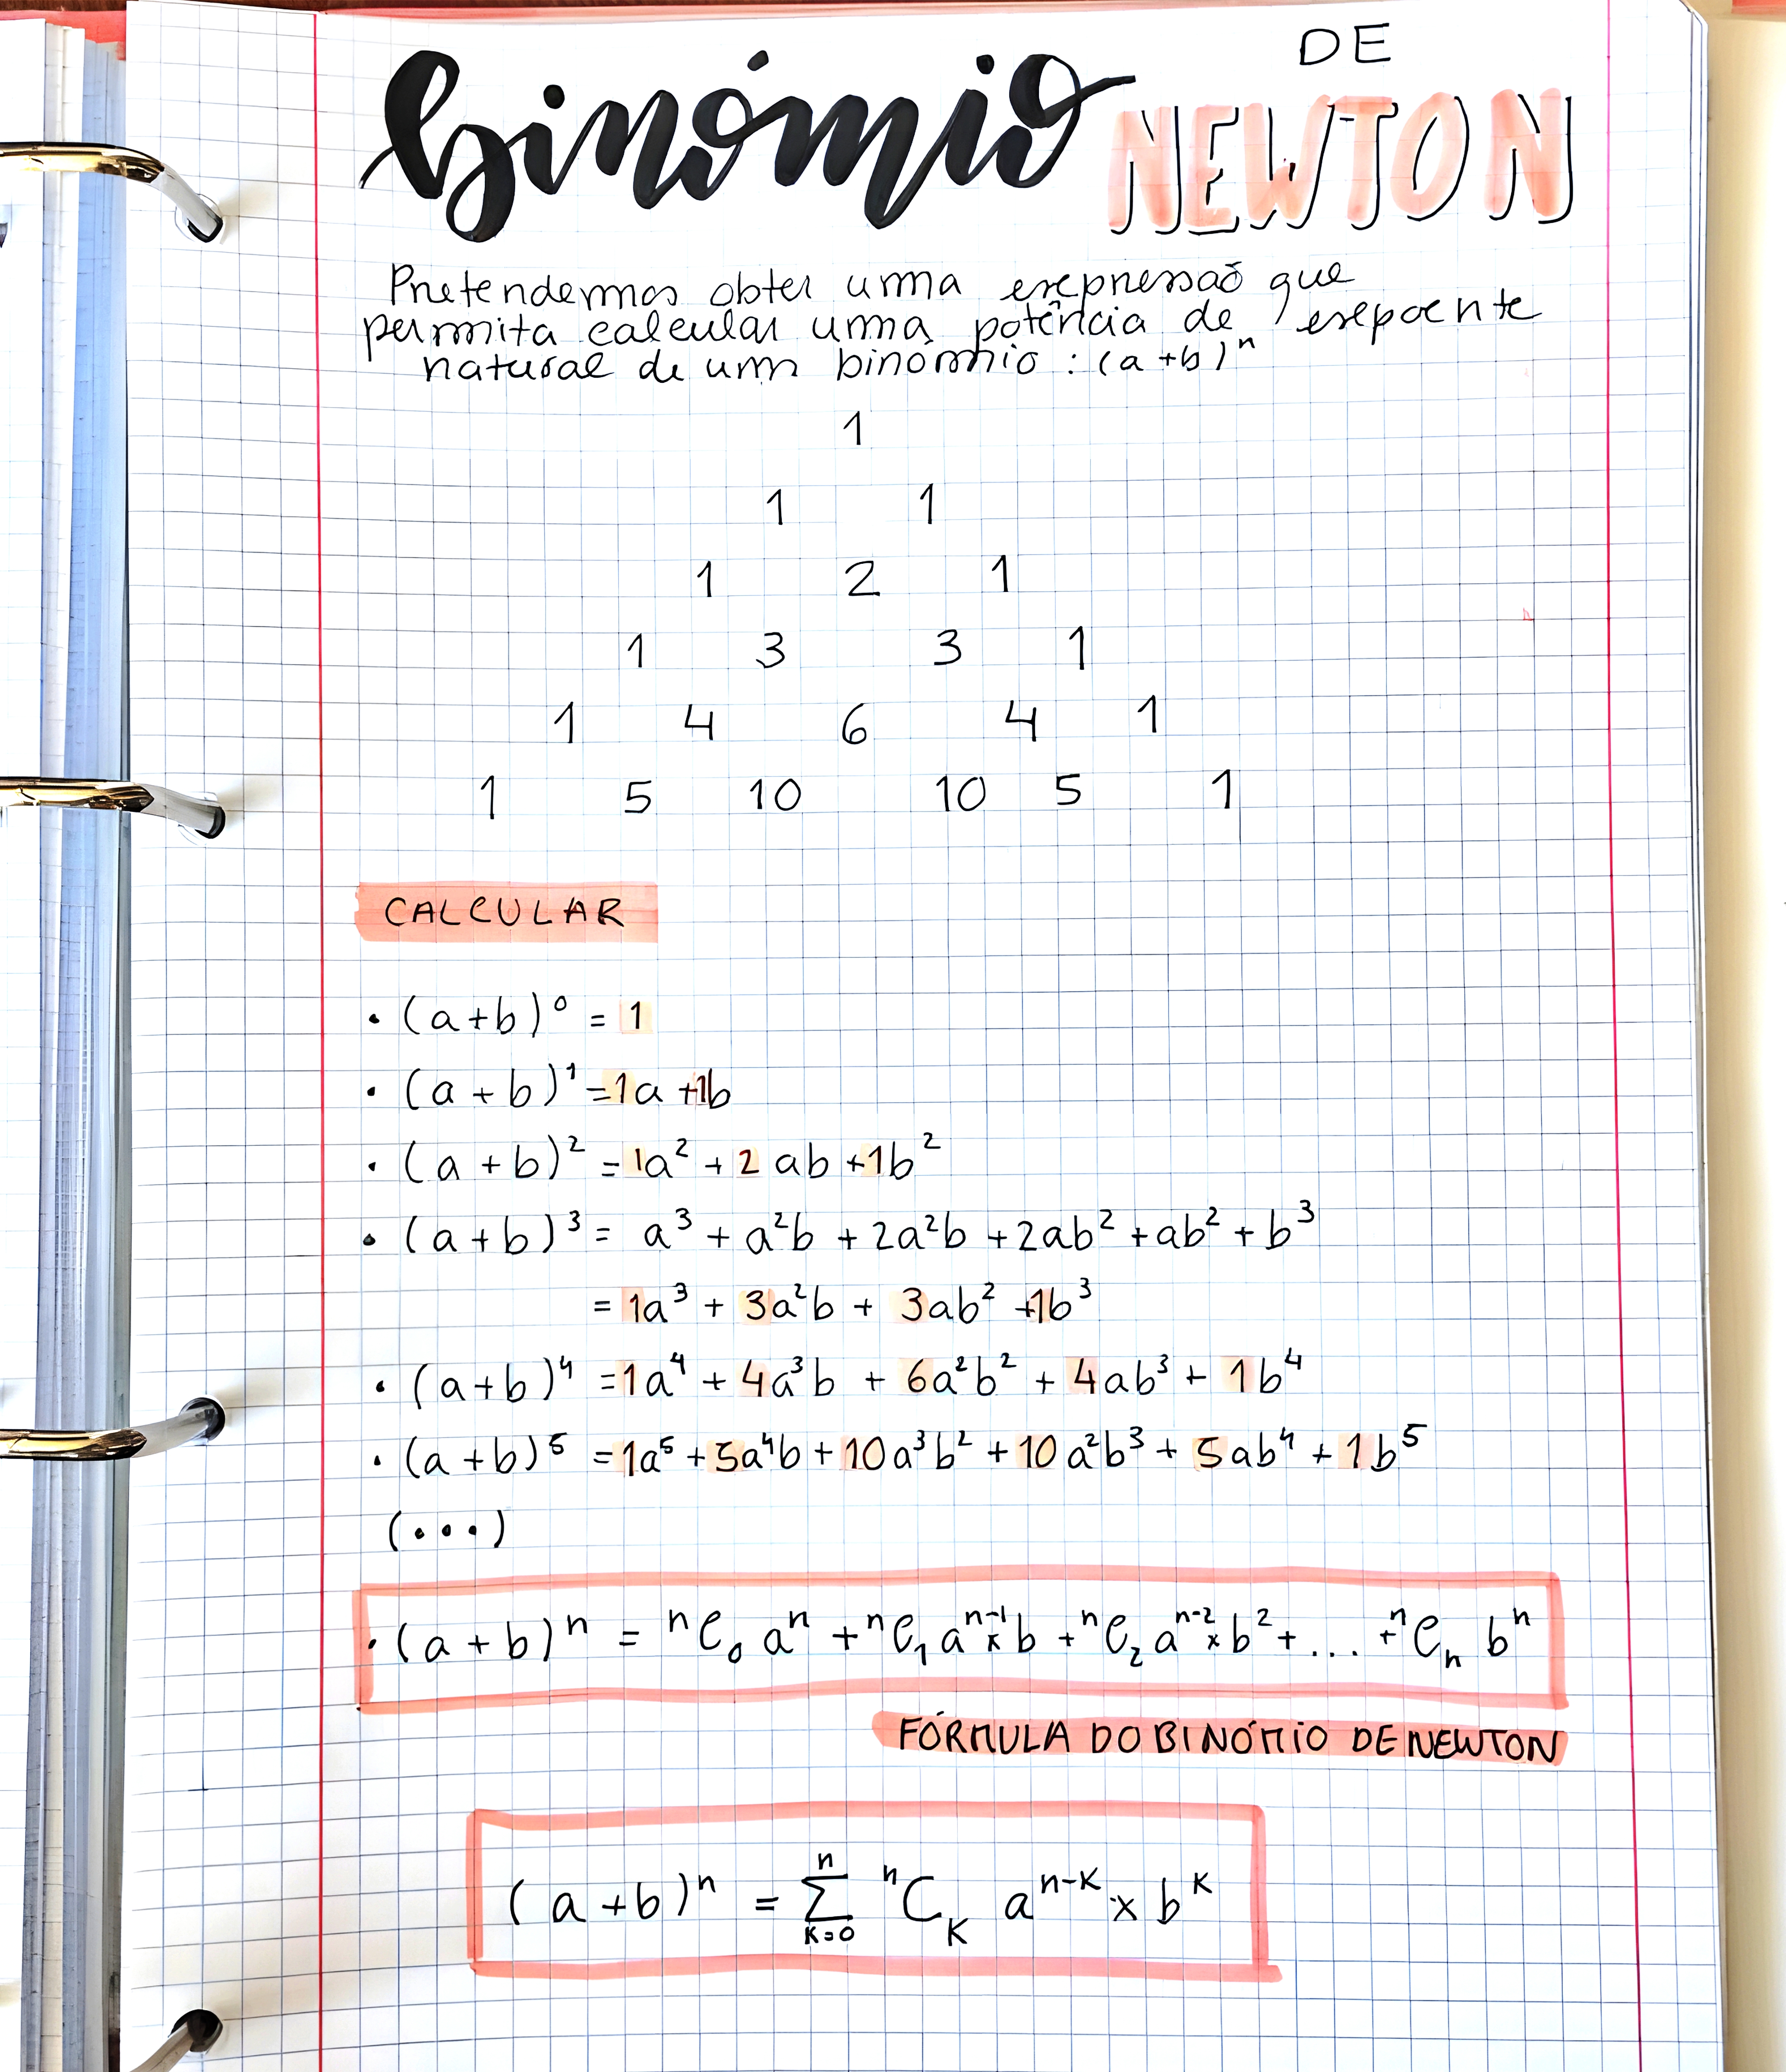 binómio DE NEWTON
Pretendemos obter uma expressão que
permita calcular uma potência de expoente
natural de um binómio : (a+b)ⁿ
1
1 1
1 2 1
1 3 3 1
1 4 6 4 1
1 5 10 10 5 1
CALCULAR
• (a+b)⁰ = 1
• (a+b)¹ = 1a + 1b
• (a+b)² = 1a² + 2ab + 1b²
• (a+b)³ = a³ + a²b + 2a²b + 2ab² + ab² + b³
= 1a³ + 3a²b + 3ab² + 1b³
• (a+b)⁴ = 1a⁴ + 4a³b + 6a²b² + 4ab³ + 1b⁴
• (a+b)⁵ = 1a⁵ + 5a⁴b + 10a³b² + 10a²b³ + 5ab⁴ + 1b⁵
(•••)
• (a+b)ⁿ = ⁿC₀ aⁿ + ⁿC₁ aⁿ⁻¹ × b + ⁿC₂ aⁿ⁻² × b² + ... + ⁿCₙ bⁿ
FÓRMULA DO BINÓMIO DE NEWTON
(a+b)ⁿ = ∑ₖ₌₀ⁿ ⁿCₖ aⁿ⁻ᵏ × bᵏ